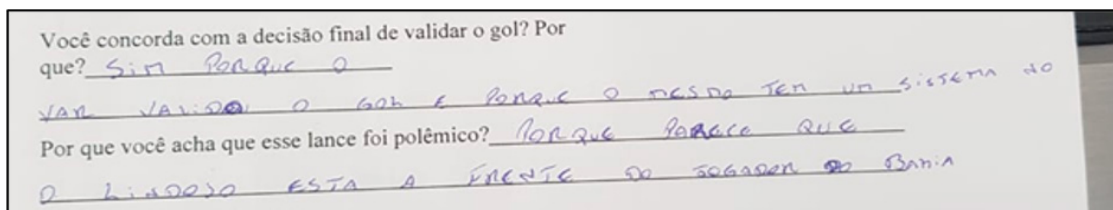 Você concorda com a decisão final de validar o gol? Por
que? Sim PORQUE O
VAR VALIDOU O GOL E PORQUE O MESMO TEM UM SISTEMA NO
Por que você acha que esse lance foi polêmico? PORQUE PARECE QUE
O LINDOSO ESTA A FRENTE DO JOGADOR DO BAHIA